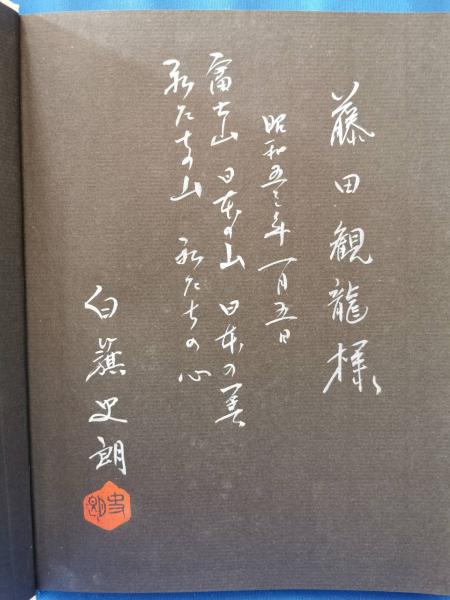 藤田観龍様
昭和五三年一月五日
富士山 日本の山 日本の美
私たちの山 私たちの心
白籏史朗
史朗